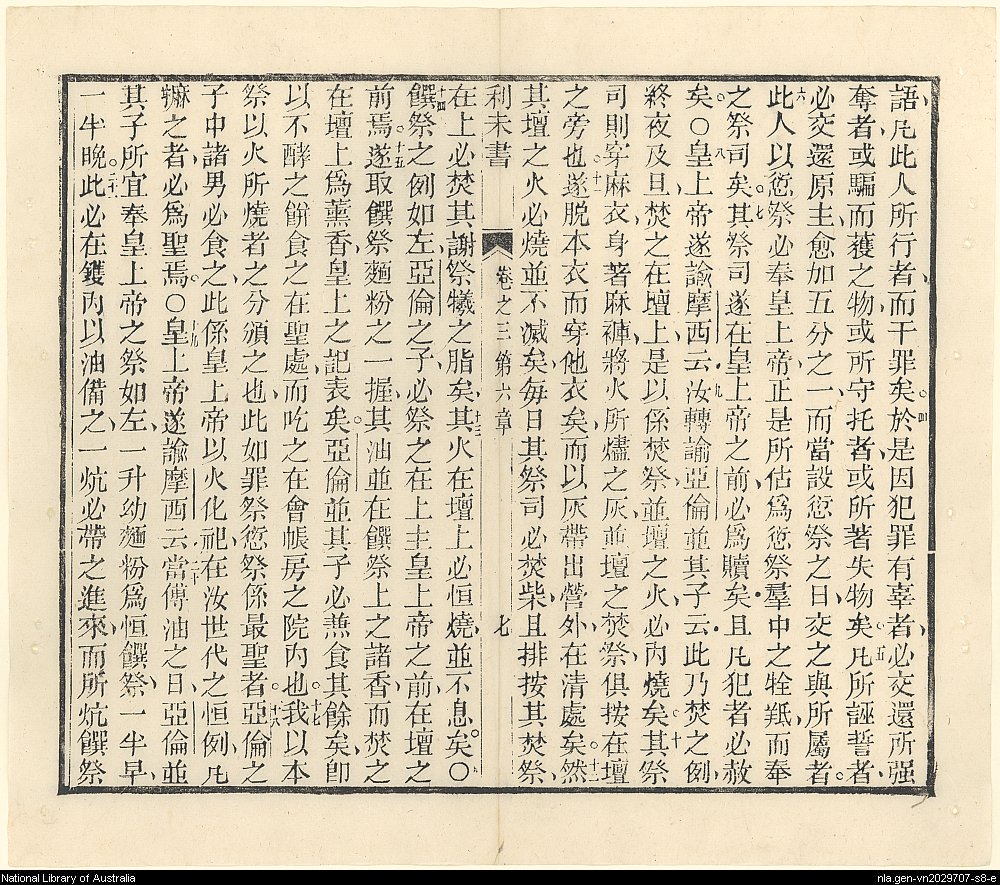 語凡此人所行者而干罪矣四於是因犯罪有辜者必交還所强
奪者或騙而獲之物或所守托者或所著失物矣五凡所誣誓者
六必交還原主愈加五分之一而當設愆祭之日交之與所屬者
此人以愆祭必奉皇上帝正是所估爲愆祭羣中之牷羝而奉
之祭司矣七其祭司遂在皇上帝之前必爲贖矣且凡犯者必赦
矣○八皇上帝遂諭摩西云九汝轉諭亞倫並其子云此乃焚之例
終夜及旦焚之在壇上是以係焚祭並壇之火必內燒矣十其祭
司則穿麻衣身著麻褲將火所燼之灰並壇之焚祭俱按在壇
之旁也十一遂脱本衣而穿他衣矣而以灰帶出營外在清處矣十二然
其壇之火必燒並不滅矣每日其祭司必焚柴且排按其焚祭
利未書 卷之三第六章 七
在上必焚其謝祭犧之脂矣十三其火在壇上必恒燒並不息矣○
十四饌祭之例如左亞倫之子必祭之在上主皇上帝之前在壇之
前焉十五遂取饌祭麵粉之一握其油並在饌祭上之諸香而焚之
在壇上爲薰香皇上之記表矣亞倫並其子必烝食其餘矣卽
以不酵之餅食之在聖處而吃之在會帳房之院內也十七我以本
祭以火所燒者之分頒之也此如罪祭愆祭係最聖者十八亞倫之
子中諸男必食之此係皇上帝以火化祀在汝世代之恒例凡
嘛之者必爲聖焉○十九皇上帝遂諭摩西云二十當傅油之日亞倫並
其子所宜奉皇上帝之祭如左一升幼麵粉爲恒饌祭一半早
一半晩此必在鑊內以油備之一炕必帶之進來而所炕饌祭
National Library of Australia
nla.gen-vn2029707-s8-e